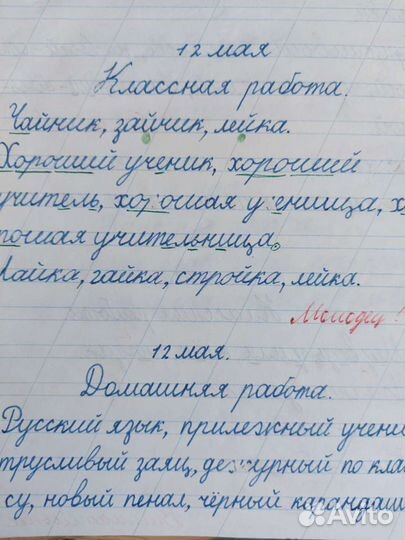 12 мая
Классная работа.
Чайник, зайчик, лейка.
Хороший ученик, хороший
учитель, хорошая ученица, х
рошая учительница.
Майка, гайка, стройка, лейка.
Молодец!
12 мая.
Домашняя работа.
Русский язык, прилежный учени
трусливый заяц, дежурный по клас
су, новый пенал, чёрный карандаш
Avito